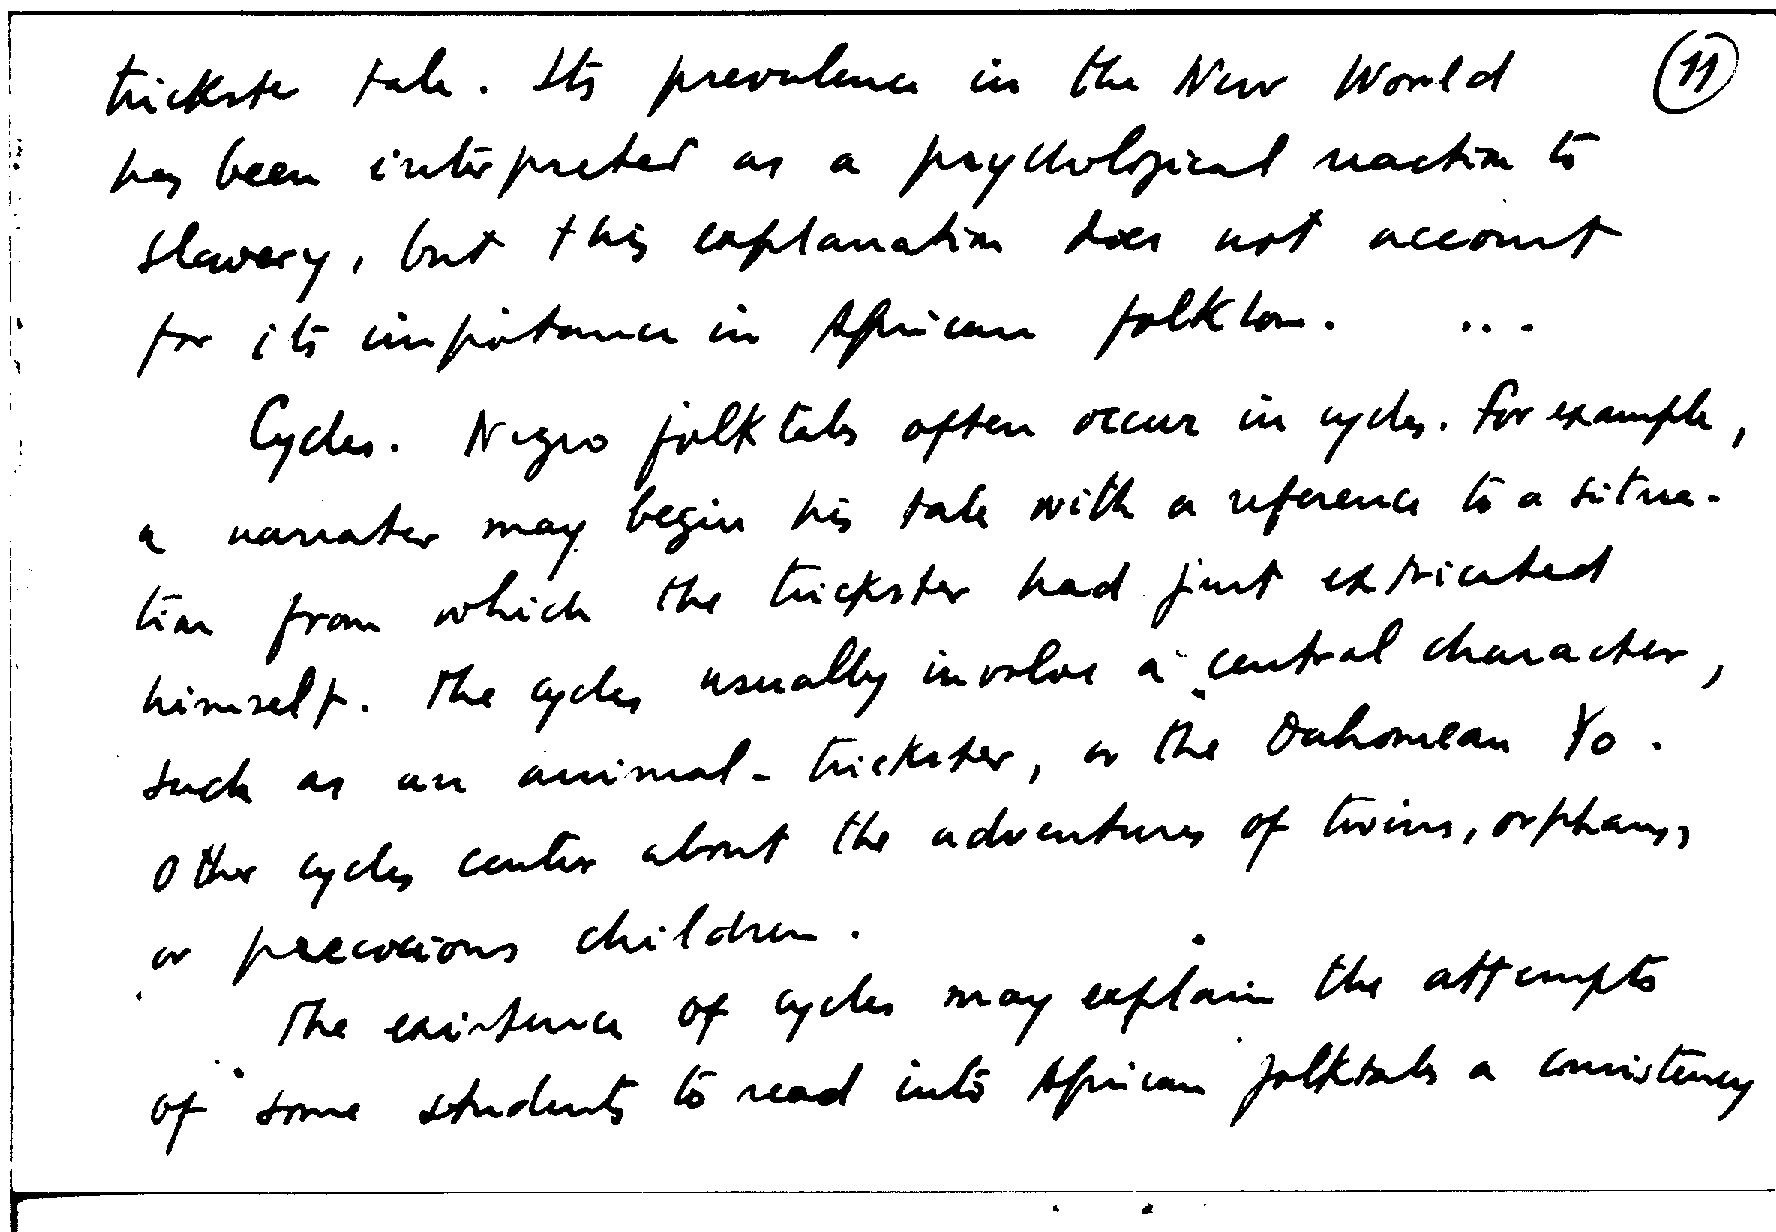 trickster tale. Its prevalence in the New World
⑪
has been interpreted as a psychological reaction to
slavery, but this explanation does not account
for its importance in African folklore. ...
Cycles. Negro folktales often occur in cycles. For example,
a narrater may begin his tale with a reference to a situa-
tion from which the trickster had just extricated
himself. The cycles usually involve a central character,
such as an animal-trickster, or the Dahomean Yo.
Other cycles center about the adventures of twins, orphans,
or precocious children.
The existence of cycles may explain the attempts
of some students to read into African folktales a consistency